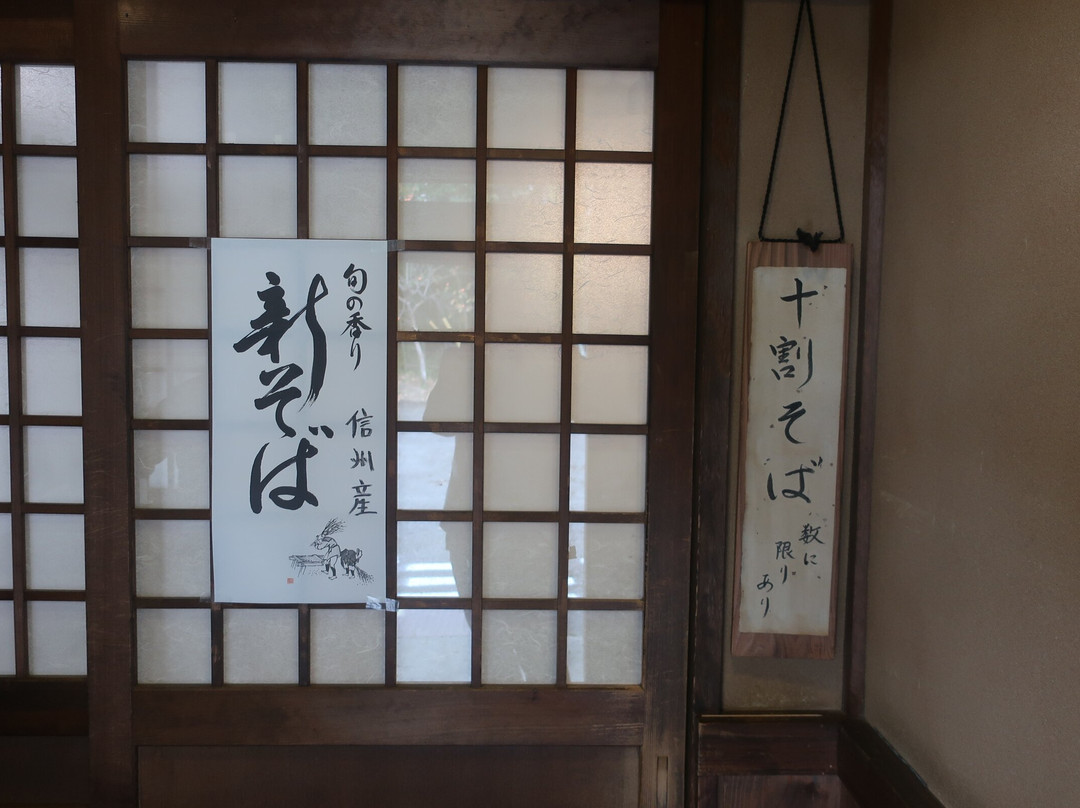 十割そば
数に
限り
あり
旬の香り
信州産
新そば